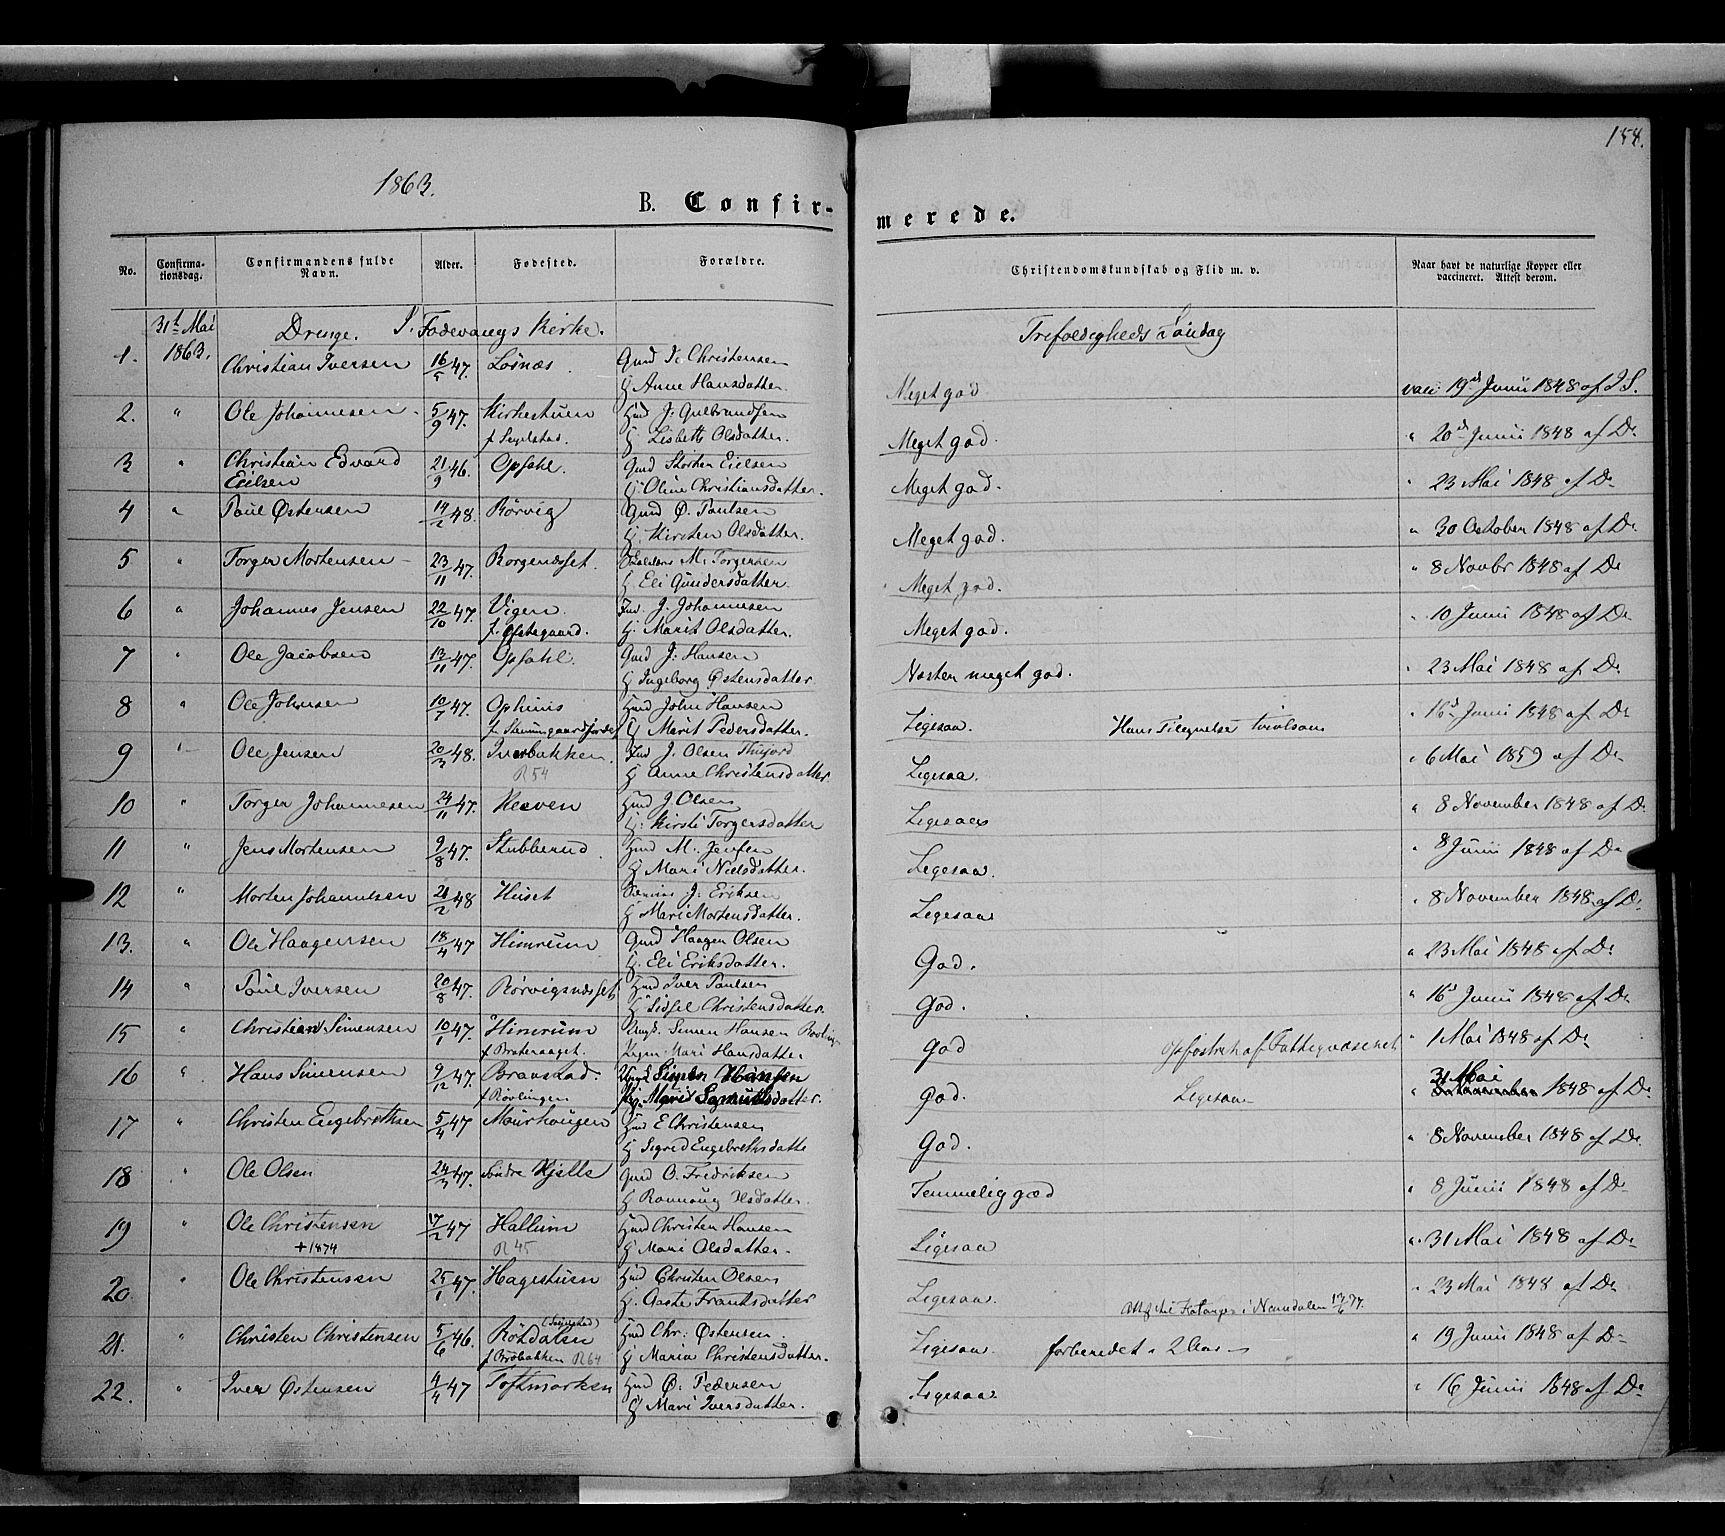 158.
1863.
B. Confir- merede.
No. Confirma-tionsdag. Confirmandens fulde Navn. Alder. Fødested. Forældre. Christendomskundskab og Flid m. v. Naar havt de naturlige Kopper eller vaccineret. Attest derom.
31t Mai 1863. Drenge. I Fodevangs Kirke. Trefoldigheds Søndag
1. Christian Iversen 16/5 47. Losnæs. Gmd I. Christensen
H Anne Hansdatter. Meget god vac: 19de Junii 1848 af I. S.
2. " Ole Johannesen 5/9 47. Kirkestuen Hmd J. Gulbrandsen
f. Segelstad. H Lisbeth Olsdatter. Meget god. " 20de Junii 1848 af Do
3 " Christian Edvard 21/9 46. Opsahl. Gmd Eielsen
Eielsen H. Oline Christiansdatter. Meget god. " 23 Mai 1848 af Do
4 " Poul Østensen 14/2 48. Rørvig Gmd Ø. Paulsen
H. Kirsten Olsdatter. Meget god. " 30 October 1848 af Do
5 " Torger Mortensen 23/11 47. M. Torgersen
H Eli Gundersdatter. Meget god. " 8 Novbr 1848 af Do
6 " Johannes Jensen 22/10 47. Vigen. Ind. J. Johannesen
f. Østegaard. H. Marit Olsdatter. Meget god. " 10 Junii 1848 af Do
7 " Ole Jacobsen 13/11 47. Opsahl. Gmd J. Hansen
H Ingeborg Østensdatter Næsten meget god. " 23 Mai 1848 af Do
8 " Ole Johnsen 10/7 47. Ophuus Hmd John Hansen
H Marit Pedersdatter. Ligesaa. Hans Tilegnelse tvivlsom " 16de Junii 1848 af Do
9 " Ole Jensen 20/3 48. Iverbakken. Ind J. Olsen
R 54 H Anne Christensdatter Ligesaa. " 6 Mai 1859 af Do
10 " Torger Johannesen 24/11 47. Hmd J. Olsen
H. Kirsti Torgersdatter Ligesaa " 8 November 1848 af Do
11 " Jens Mortensen 9/8 47. Stubberud. Hmd M. Jensen
H Mari Nielsdatter. Ligesaa. " 8 Junii 1848 af Do
12 " Morten Johannesen 21/2 48 Huset J. Eriksen
H Mari Mortensdatter. Ligesaa " 8 November 1848 af Do
13. " Ole Haagensen 18/4 47 Himrum Gmd Haagen Olsen
H. Eli Eriksdatter. God. " 23 Mai 1848 af Do
14 " Poul Iversen 20/8 47. Rørvigsnæsset Hmd Iver Paulsen
H Sidsel Christensdatter. God. " 16de Junii 1848 af Do
15 " Christian Simensen 10/1 47. Himrum Ungk. Simen Hansen
f Brateraaget. Pigen Mari Hansdatter God Opfostret af Fattigvæsenet " 1 Mai 1848 af Do
16 " Hans Simensen 9/12 47. Branstad. Ungk Simen Hansen
f Røvlingen Marit Samuelsdatter. God. Ligesaa 31 Mai
" 1848 af Do
17 " Christen Engebrethsen 5/4 47 Maurhaugen Hmd E Christensen
H Sigrid Engebrethsdatte God. " 8 November 1848 af Do
18 " Ole Olsen 24/3 47. Søndre Kjelle Gmd O. Fredriksen
H Rannaug Olsdatter. Temmelig god " 8 Junii 1848 af Do
19 " Ole Christensen 17/2 47 Hallum Hmd Christen Hansen
+ 1874 R 45 H Mari Olsdatter. Ligesaa " 31 Mai 1848 af Do
20 " Ole Christensen 25/1 47. Hagestuen Hmd Christen Olsen
H. Frantsdatter Ligesaa. " 23 Mai 1848 af Do
Att. til i Namdalen 13/6 77.
21. " Christen Christensen 5/6 46. Rösdalen Hmd Chr: Østensen
f Brobakken R 64 H Maria Christensdatter. Ligesaa forberedet i 2 Aar " 19 Junii 1848 af Do
22. " Iver Østensen 4/4 47 Toftmarken Hmd Ø. Pedersen
H Mari Iversdatter. Ligesaa " 16 Junii 1848 af Do